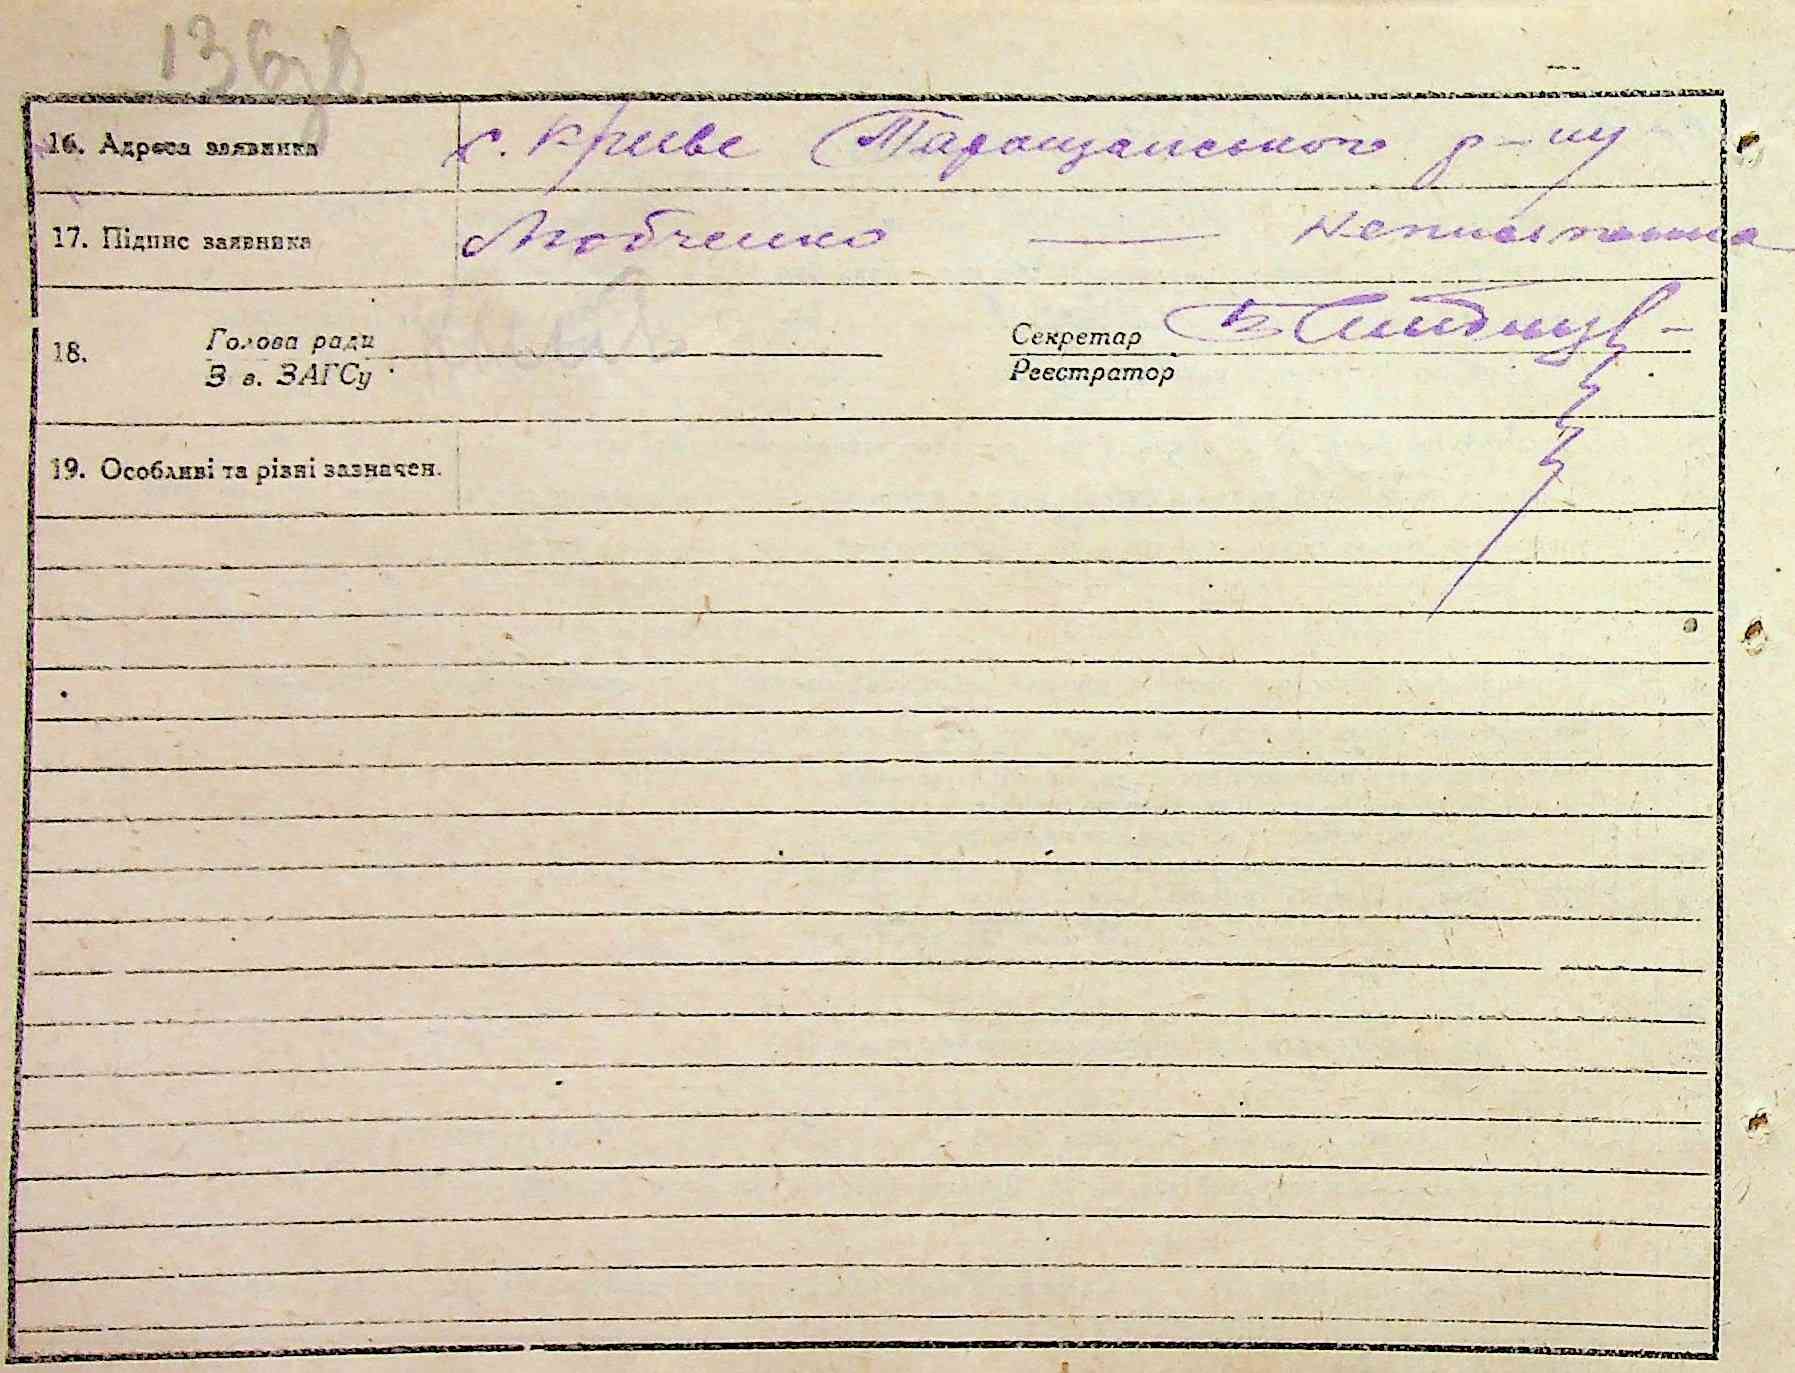 136зв
16. Адреса заявника с. Криве Таращанського р-ну
17. Підпис заявника Любченко — Неписьменна
18. Голова ради Секретар
З в. ЗАГСу Реєстратор
19. Особливі та різні зазначен.